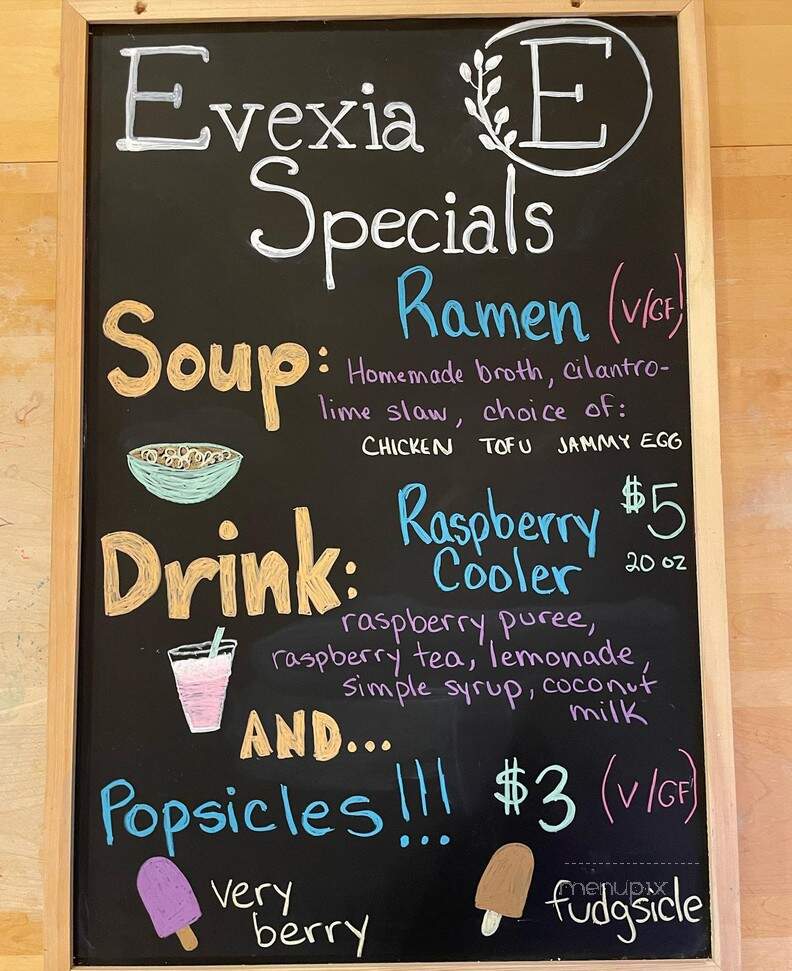 Evexia E
Specials
Soup:
Ramen (V/GF)
Homemade broth, cilantro-
lime slaw, choice of:
CHICKEN TOFU JAMMY EGG
Drink:
Raspberry $5
Cooler 20 oz
raspberry puree,
raspberry tea, lemonade,
simple syrup, coconut
milk
AND...
Popsicles!!! $3 (V/GF)
very
berry
fudgsicle
menupix